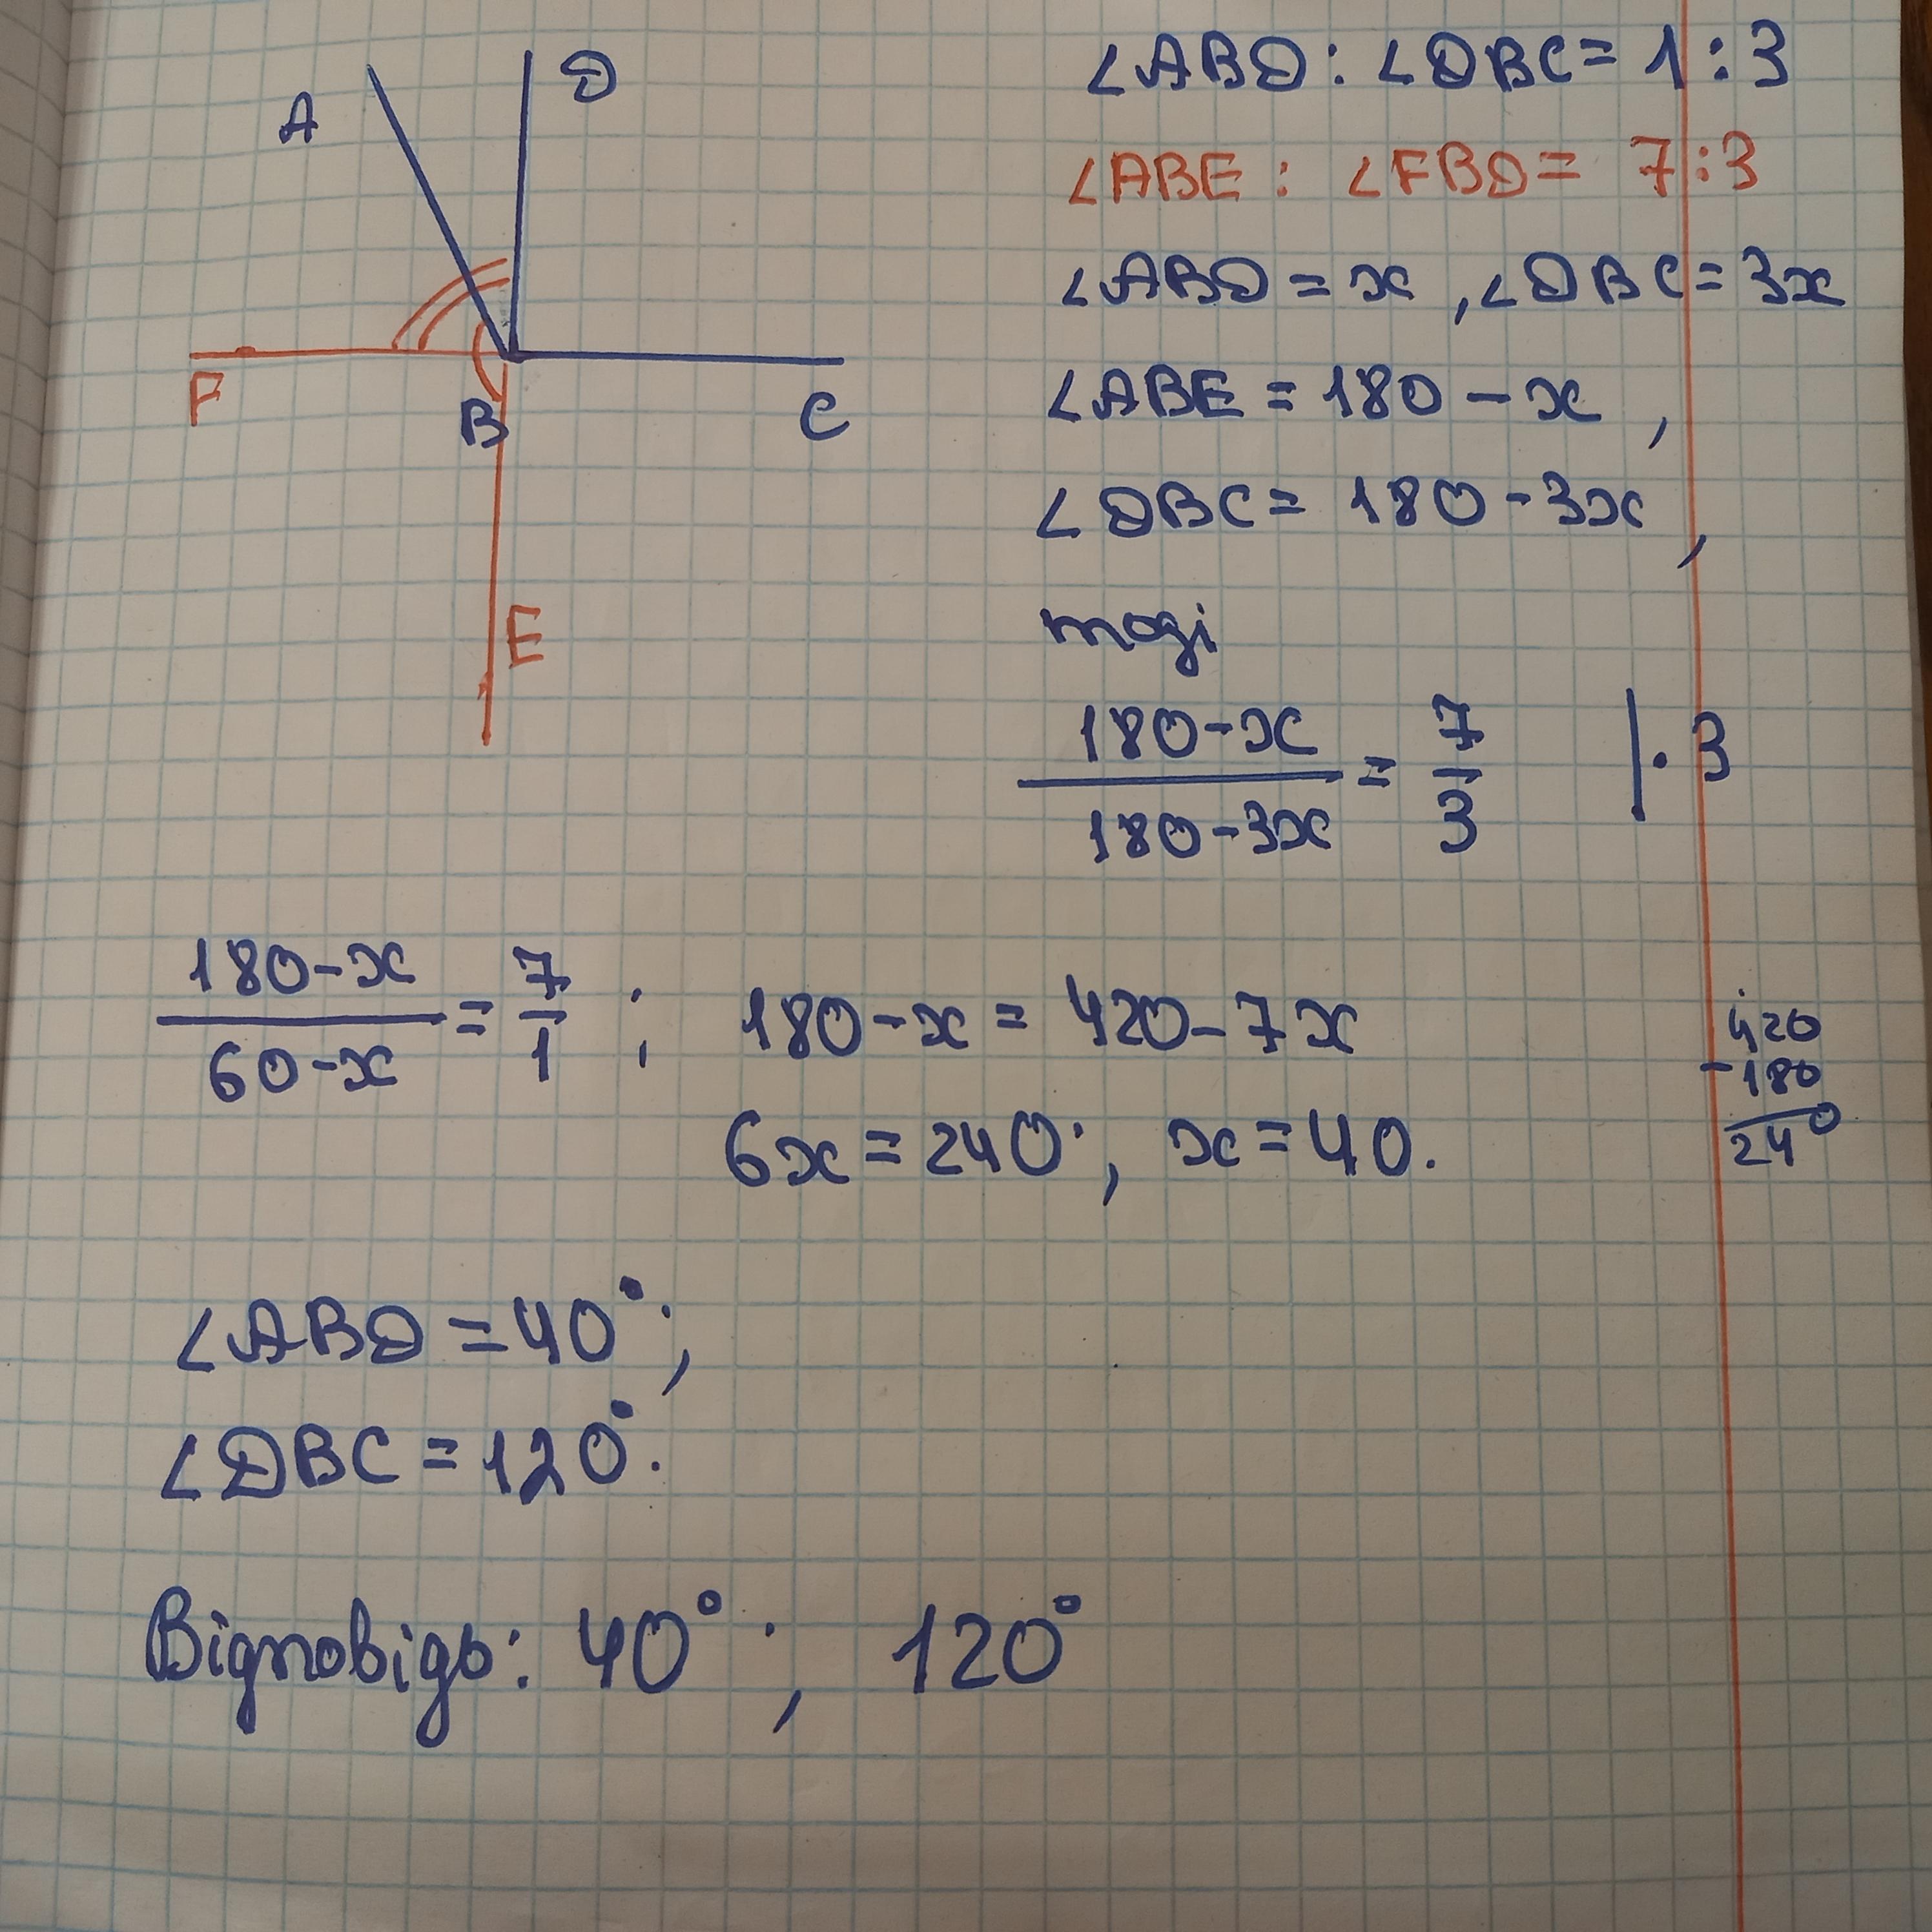 A
D
F
B
C
E
∠ABD : ∠DBC = 1 : 3
∠ABE : ∠FBD = 7 : 3
∠ABD = x , ∠DBC = 3x
∠ABE = 180 - x ,
∠DBC = 180 - 3x ,
тоді
(180 - x)/(180 - 3x) = 7/3 | · 3
(180 - x)/(60 - x) = 7/1 ; 180 - x = 420 - 7x
6x = 240 ; x = 40.
420
- 180
240
∠ABD = 40° ;
∠DBC = 120°.
Відповідь: 40° ; 120°